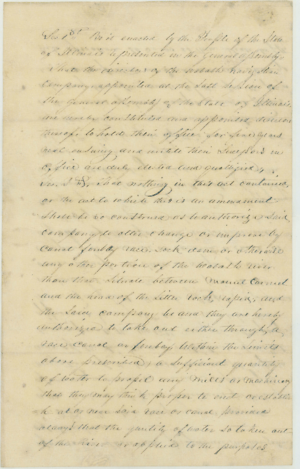 Sec 1st Be it enacted by the People of the State
of Illinois represented in the general assembly
that the directors of the Wabash Navigation
Company appointed at the last session of
the general assembly of the State of Illinois
are hereby constituted and appointed directors
thereof to hold their office for two years
next ensuing and untill their successors in
office are duly elected and qualified
Sec 2 That nothing in this act contained
or the act to which this is an amendment
shall be so construed as to authorize said
company to alter change or improve by
canal feeder race lock dam or otherwise
any other portion of the Wabash river
than that between mount Carmel
and the head of the little rock rapids, and
the said company be and they are hereby
authorized to take out either through a
race canal or feeder, between the points
above described, a sufficient quantity
of water to propel any mills or machinery
that they may think proper to erect or establish
upon said race or canal provided
always that the quantity of water so taken out
of the river or applied to the purposes